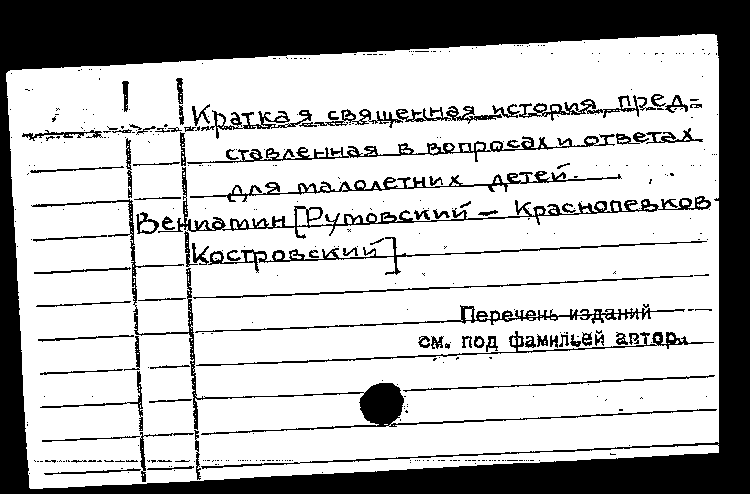 Краткая священная история, пред=
ставленная в вопросах и ответах
для малолетних детей.
Вениамин [Румовский — Краснопевков-
Костровский].
Перечень изданий
см. под фамилией автора.